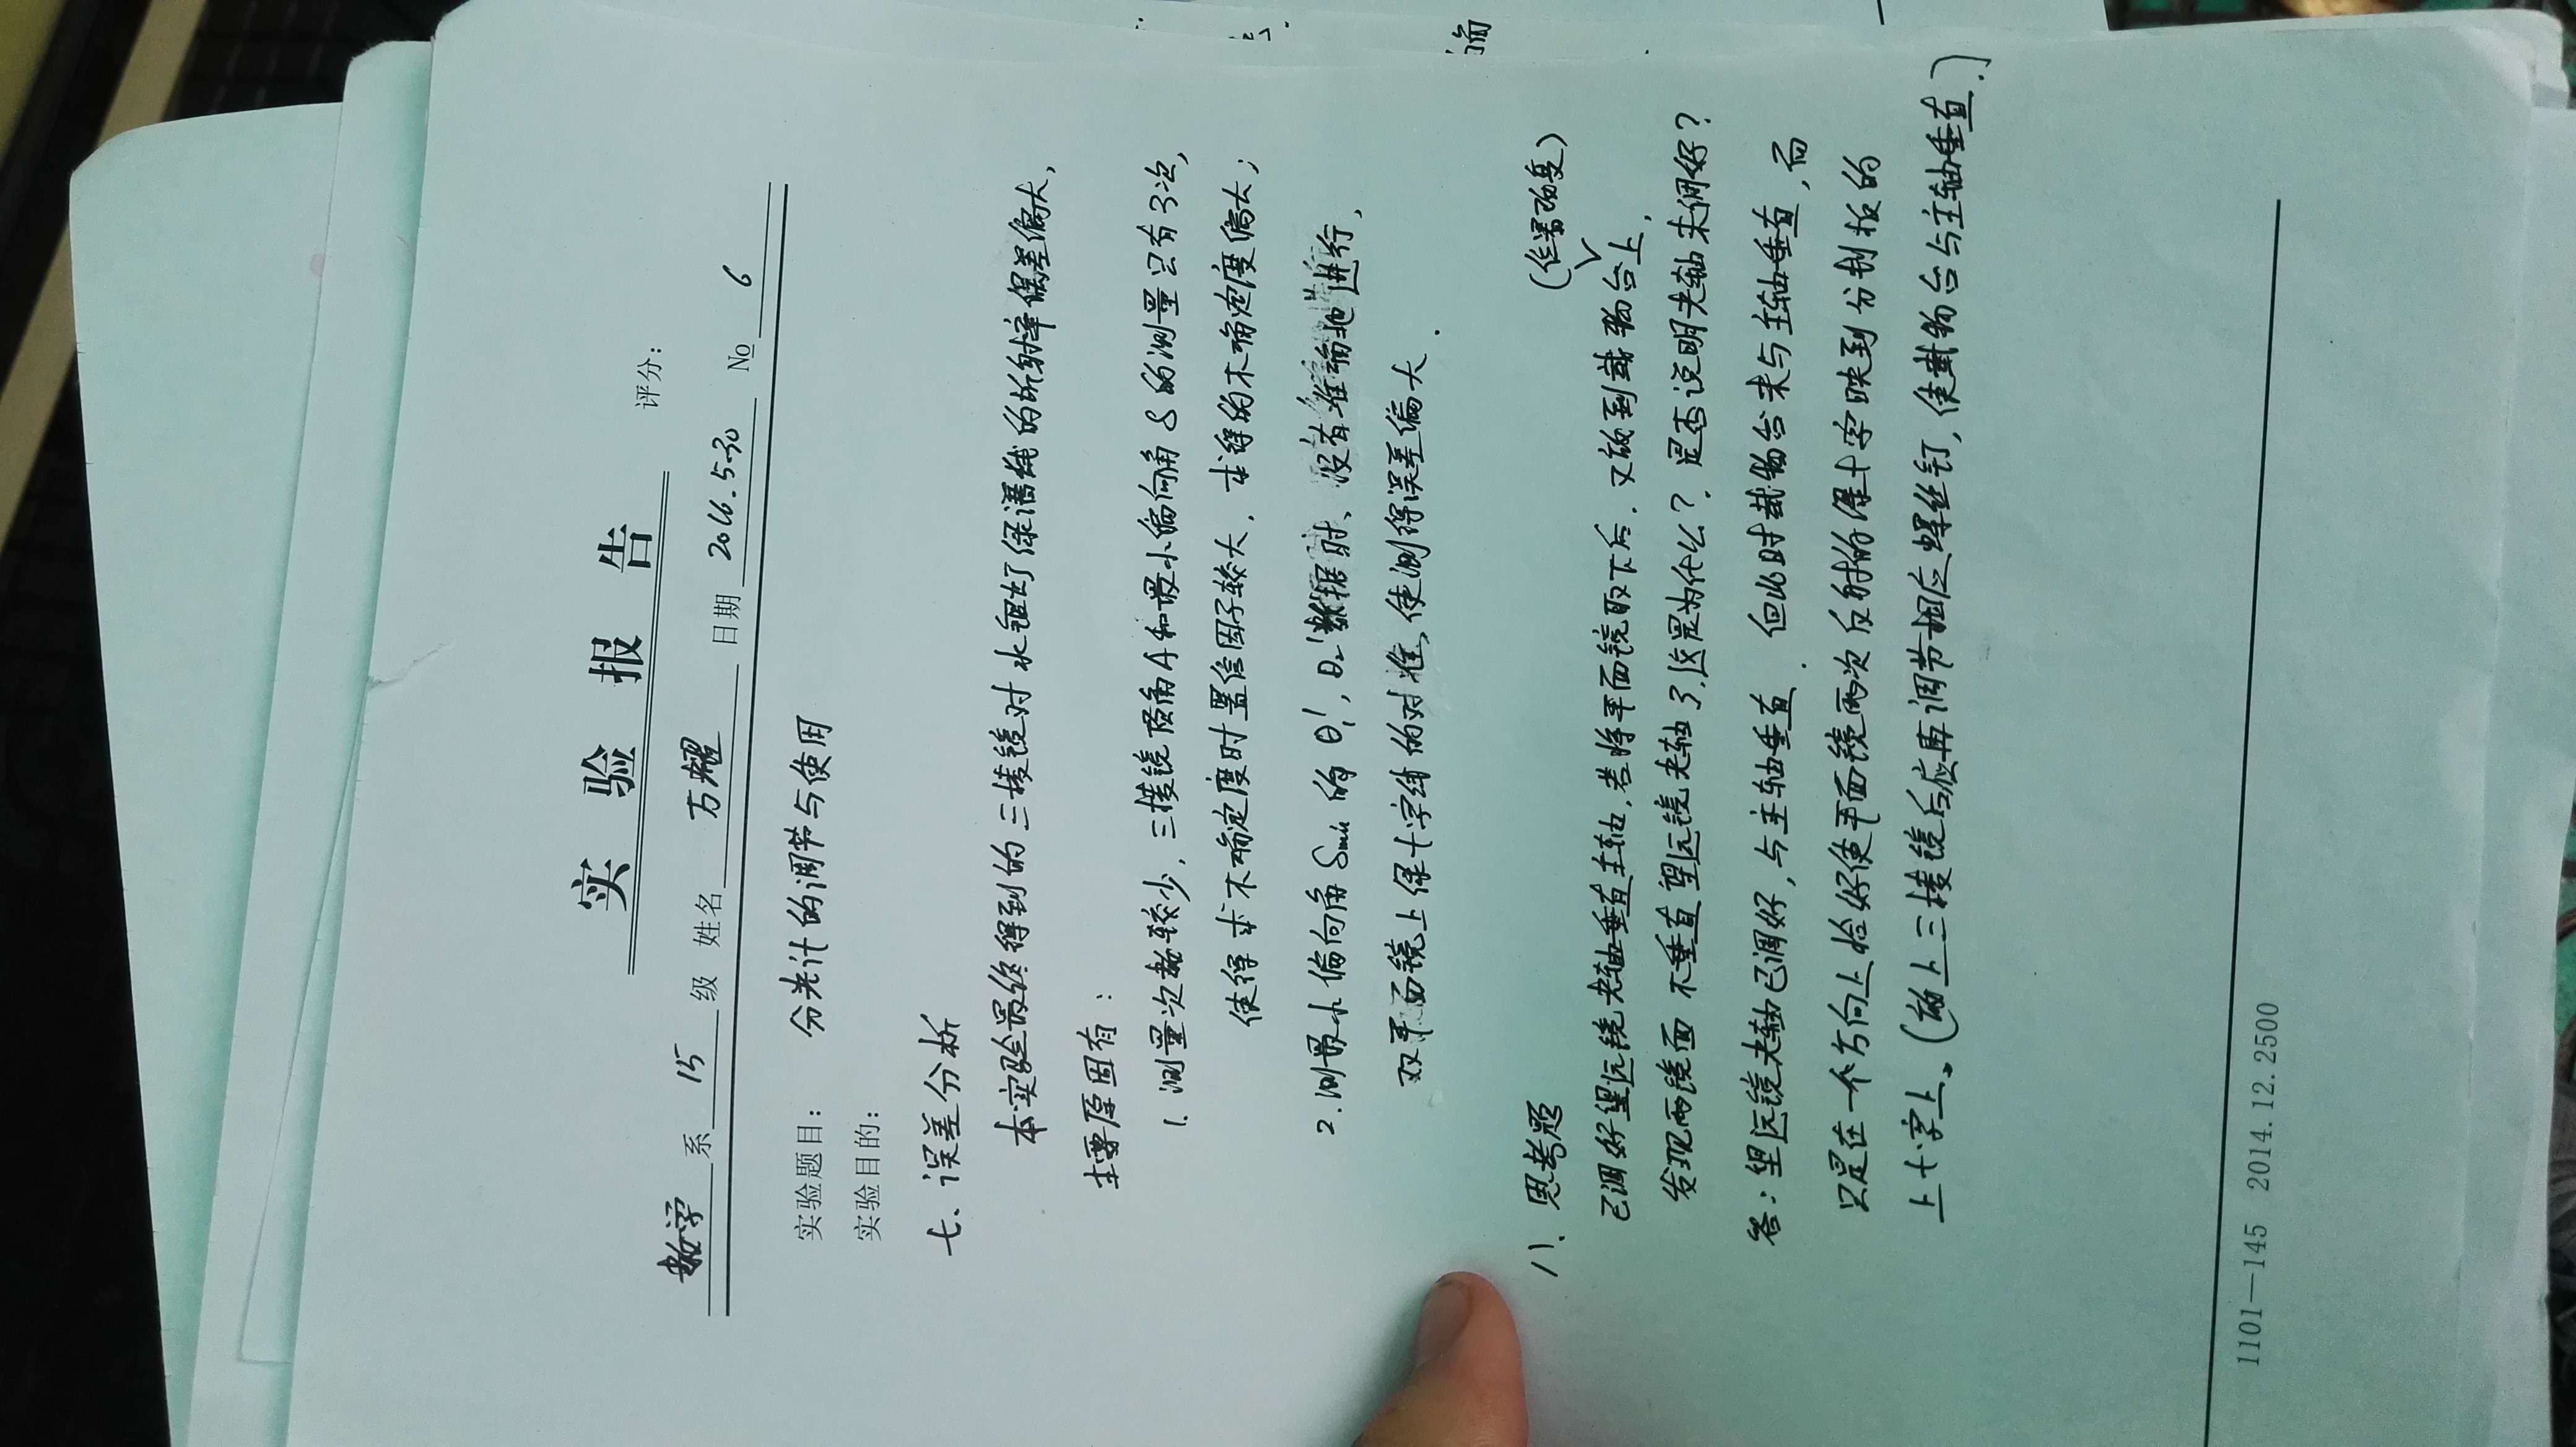 实验报告
评分：
数学 系 15 级 姓名 方耀 日期 2016.5.30 № 6
实验题目： 分光计的调节与使用
实验目的：
七、误差分析
本实验最终得到的三棱镜对水银灯绿谱线的折射率误差偏大，
主要原因有：
1. 测量次数较少，三棱镜顶角A和最小偏向角δ的测量只有3次，
使得求不确定度时置信因子较大，求得的不确定度偏大；
2. 测最小偏向角δmin的θ1', θ2'数据时、没有准确地进行，
双平面镜上绿十字线的对准，使测得误差偏大．
八、思考题
已调好望远镜光轴垂直主轴，若将平面镜取下后，又放到载物台上(位置改变)，
发现两镜面不垂直望远镜光轴了，这是为什么？是否说明光轴未调好？
答：望远镜光轴已调好，与主轴垂直．但此时载物台未与主轴垂直，而
只是在一个方向上恰好使平面镜两次反射的绿十字映到分划板的
上十字上。(放上三棱镜后应再调节相应螺丝钉，使载物台与主轴垂直．)
1101—145 2014.12.2500